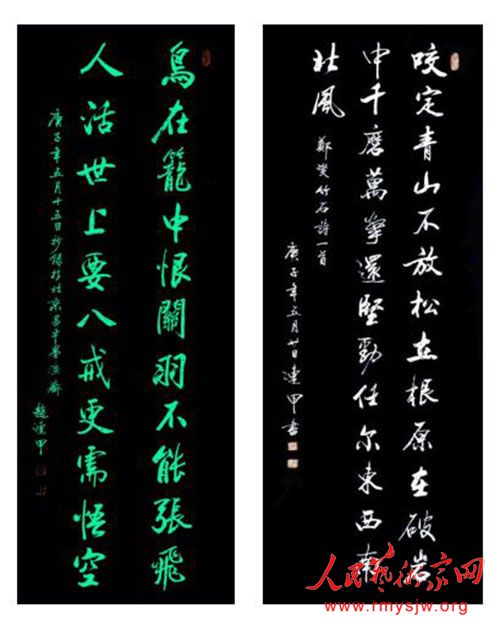 鳥在籠中恨關羽不能張飛
人活世上要八戒更需悟空
庚子年五月十五日抄錄於北京昌平夢溪齋
趙連甲
咬定青山不放松立根原在破岩
中千磨萬擊還堅勁任尔東西南
北風
鄭燮竹石詩一首
庚子年五月廿日連甲書
人民藝術家网
www.rmysjw.org